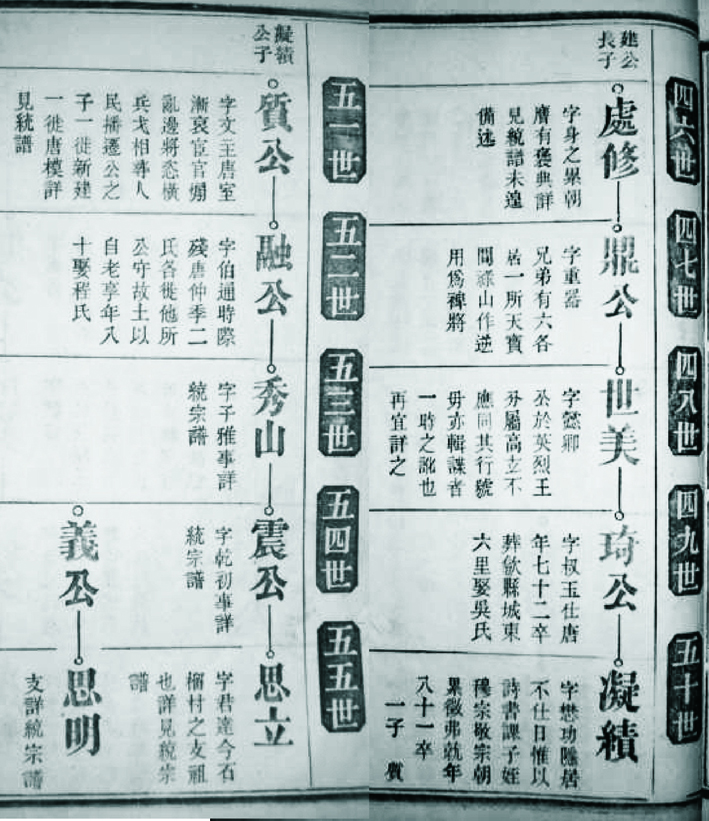 建公
長子
四六世
處修
字身之累朝
膺有褒典詳
見統譜未遑
備述
四七世
鼎公
字重器
兄弟有六各
居一所天寶
間祿山作逆
用爲裨將
四八世
世美
字懿卿
公於英烈王
分屬高立不
應同其行號
毋亦輯譜者
一時之訛也
再宜詳之
四九世
琦公
字叔玉仕唐
年七十二卒
葬歙縣城東
六里娶吳氏
五十世
凝績
字懋功隱居
不仕日惟以
詩書課子姪
穆宗敬宗朝
累徵弗就年
八十一卒
一子 質
凝績
公子
五一世
質公
字文王唐室
漸衰宦官煽
亂邊將恣橫
兵戈相尋人
民播遷公之
子一徙新建
一徙唐模詳
見統譜
五二世
融公
字伯通時際
殘唐仲季二
氏各徙他所
公守故土以
自老享年八
十娶程氏
五三世
秀山
字子雅事詳
統宗譜
五四世
震公
字乾初事詳
統宗譜
義公
五五世
思立
字君達今石
榴村之支祖
也詳見統宗
譜
思明
支詳統宗譜